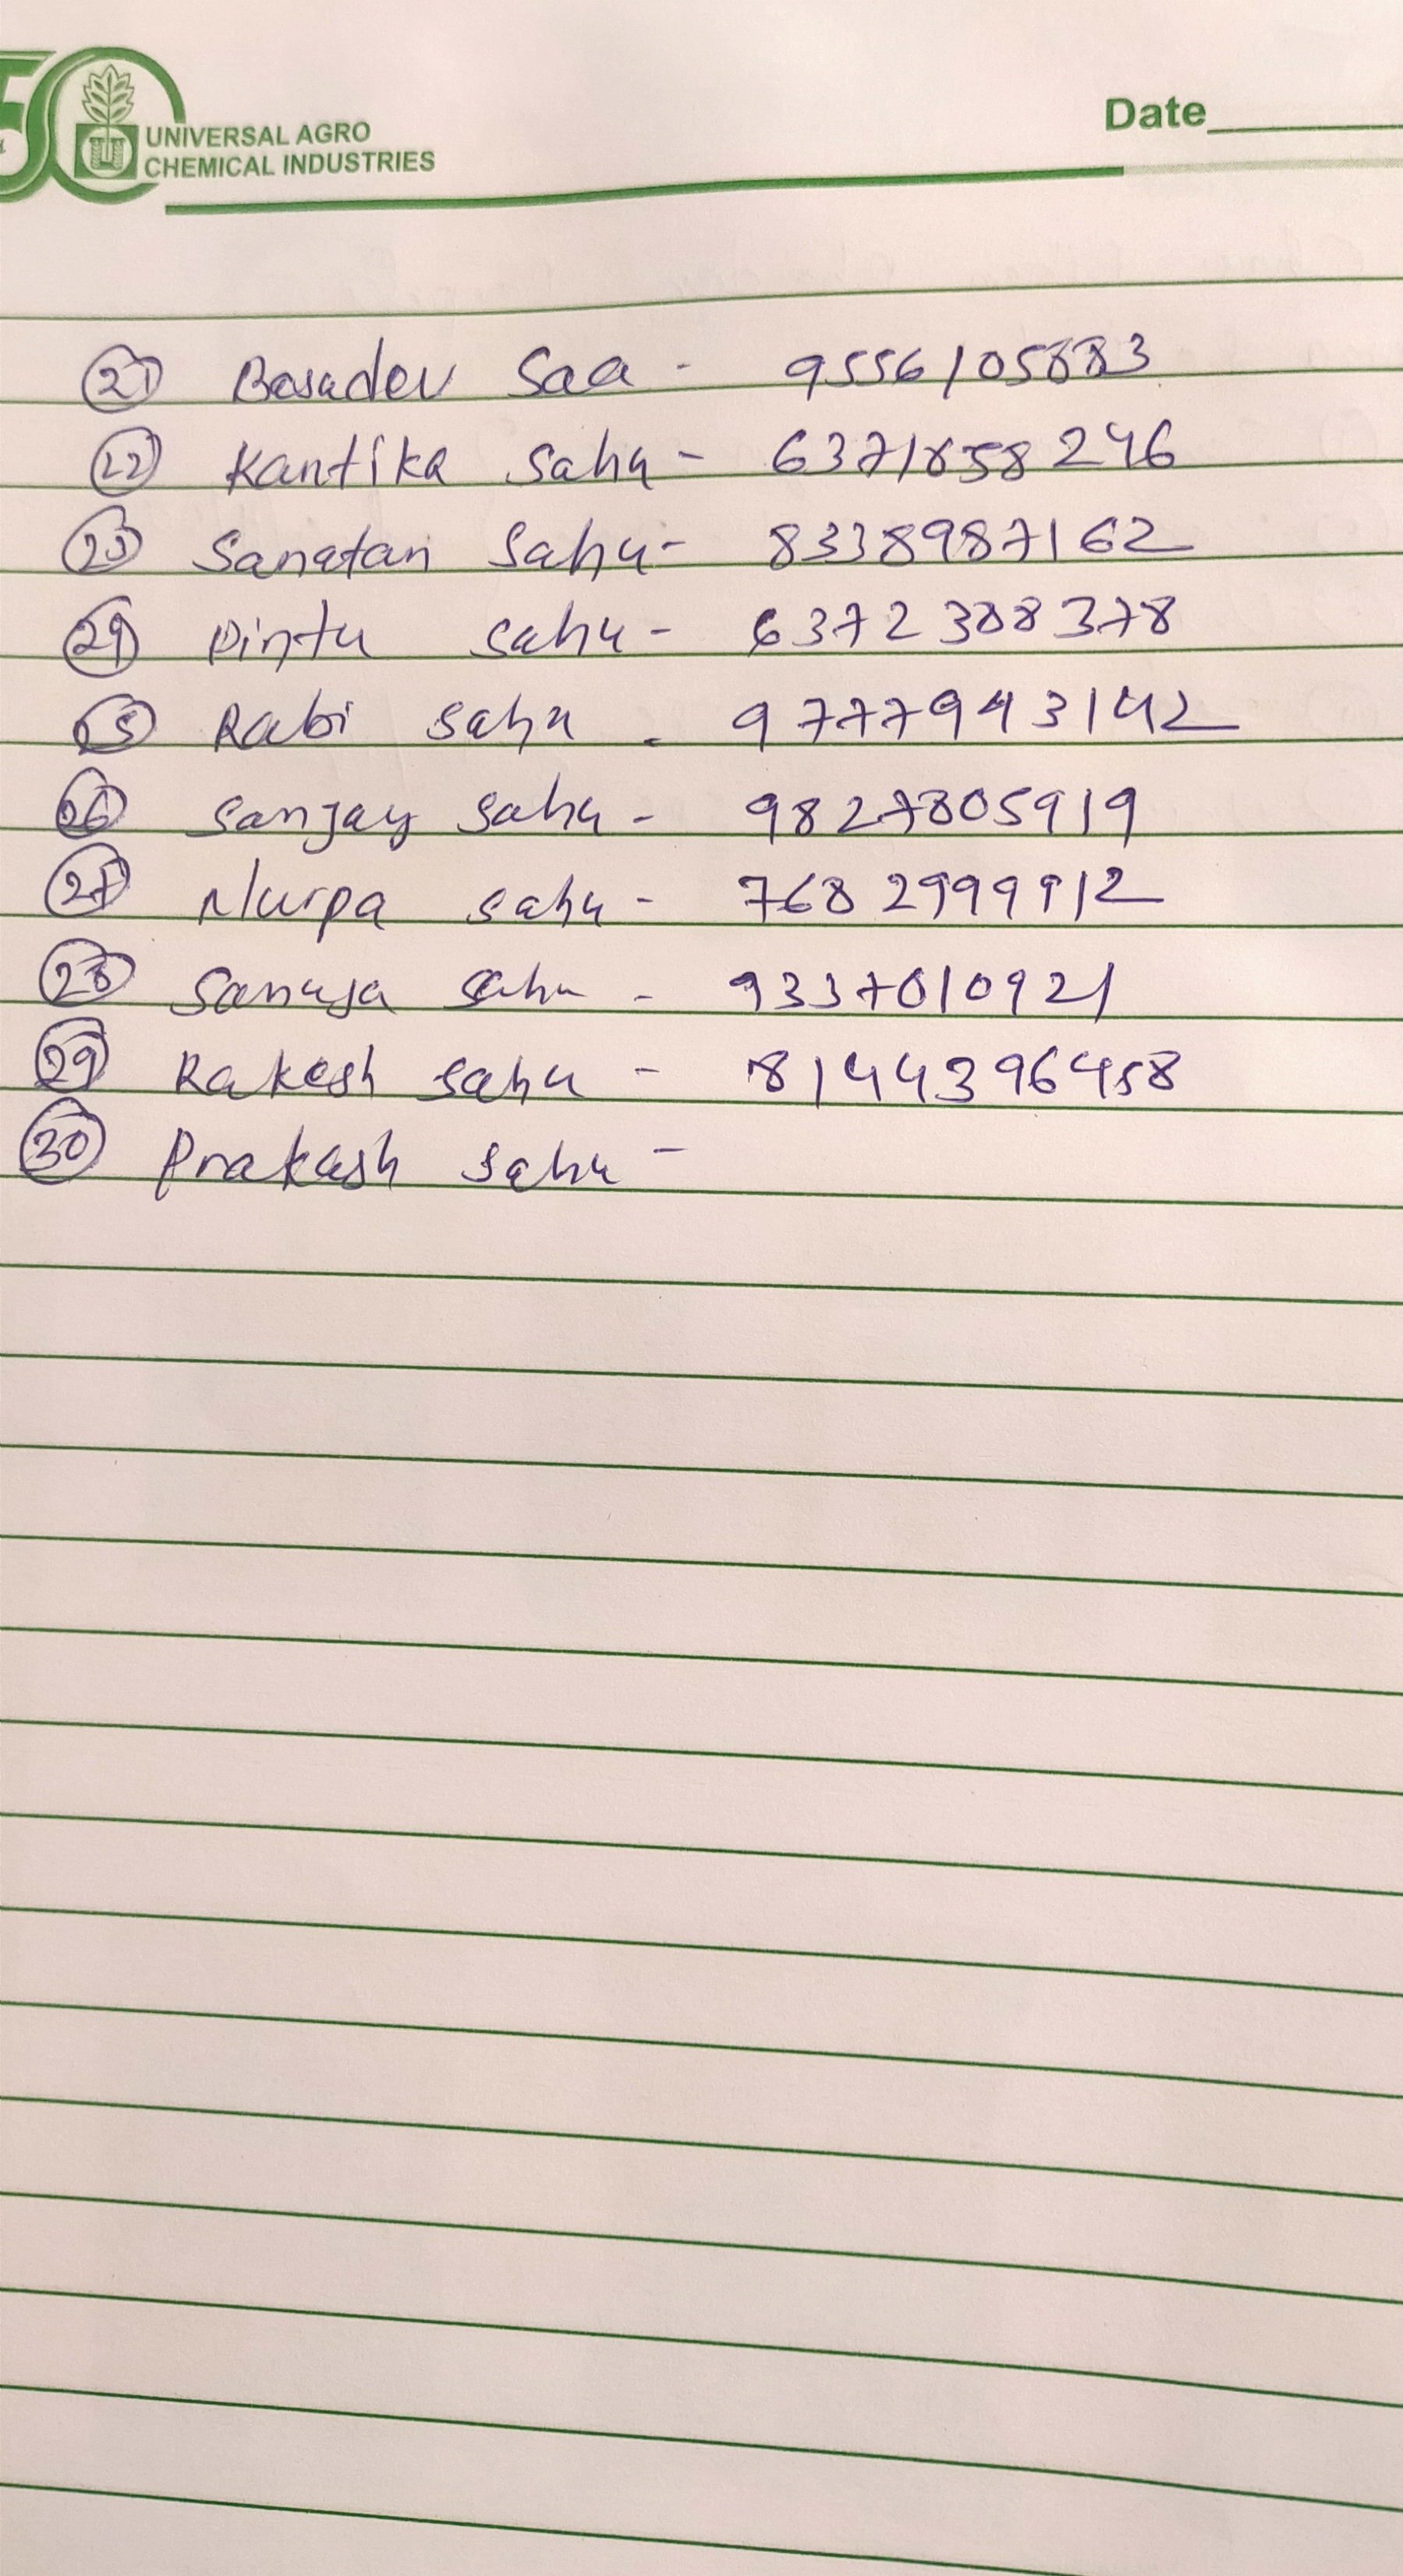 50
UNIVERSAL AGRO
CHEMICAL INDUSTRIES
Date
21 Basudev Saa - 9556105883
22 Kantika Sahu - 6371858246
23 Sanatan Sahu - 8338987162
24 Pintu Sahu - 6372388378
25 Rabi Sahu - 9777943142
26 Sanjay Sahu - 9827805919
27 Nurpa Sahu - 7682999912
28 Sanuja Sahu - 9337010921
29 Rakesh Sahu - 8144396458
30 Prakash Sahu -